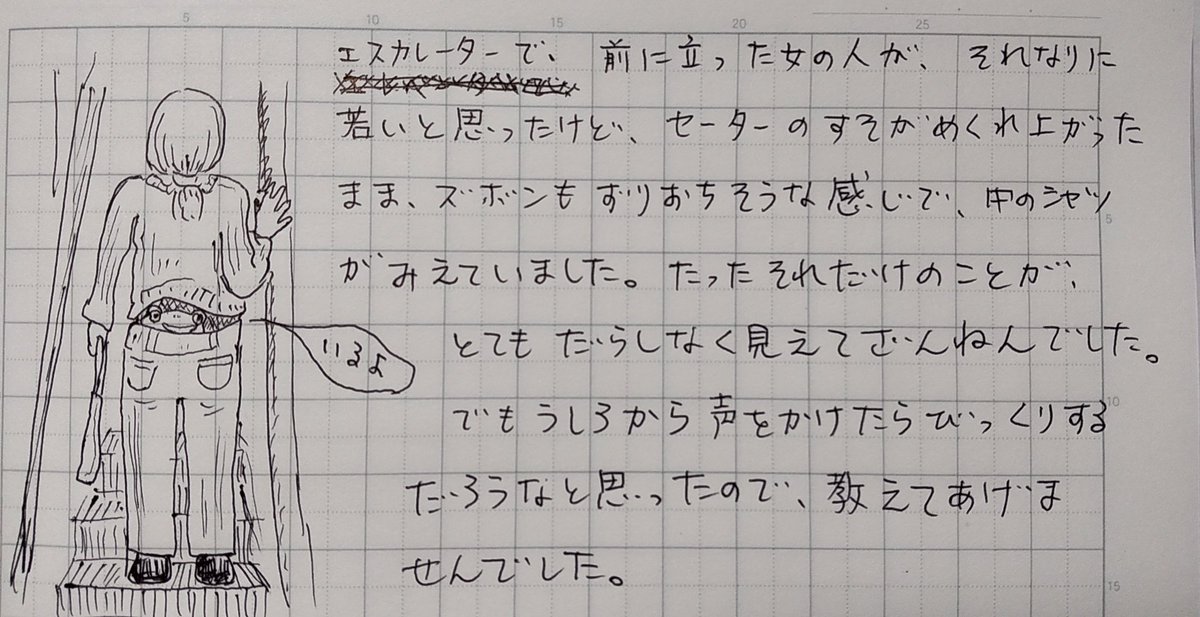 5 10 15 20 25
エスカレーターで、前に立った女の人が、それなりに
若いと思ったけど、セーターのすそがめくれ上がった
まま、ズボンもずりおちそうな感じで、中のシャツ
5
がみえていました。たったそれだけのことが、
いるよ
とてもだらしなく見えてざんねんでした。
10
でもうしろから声をかけたらびっくりする
だろうなと思ったので、教えてあげま
せんでした。
15